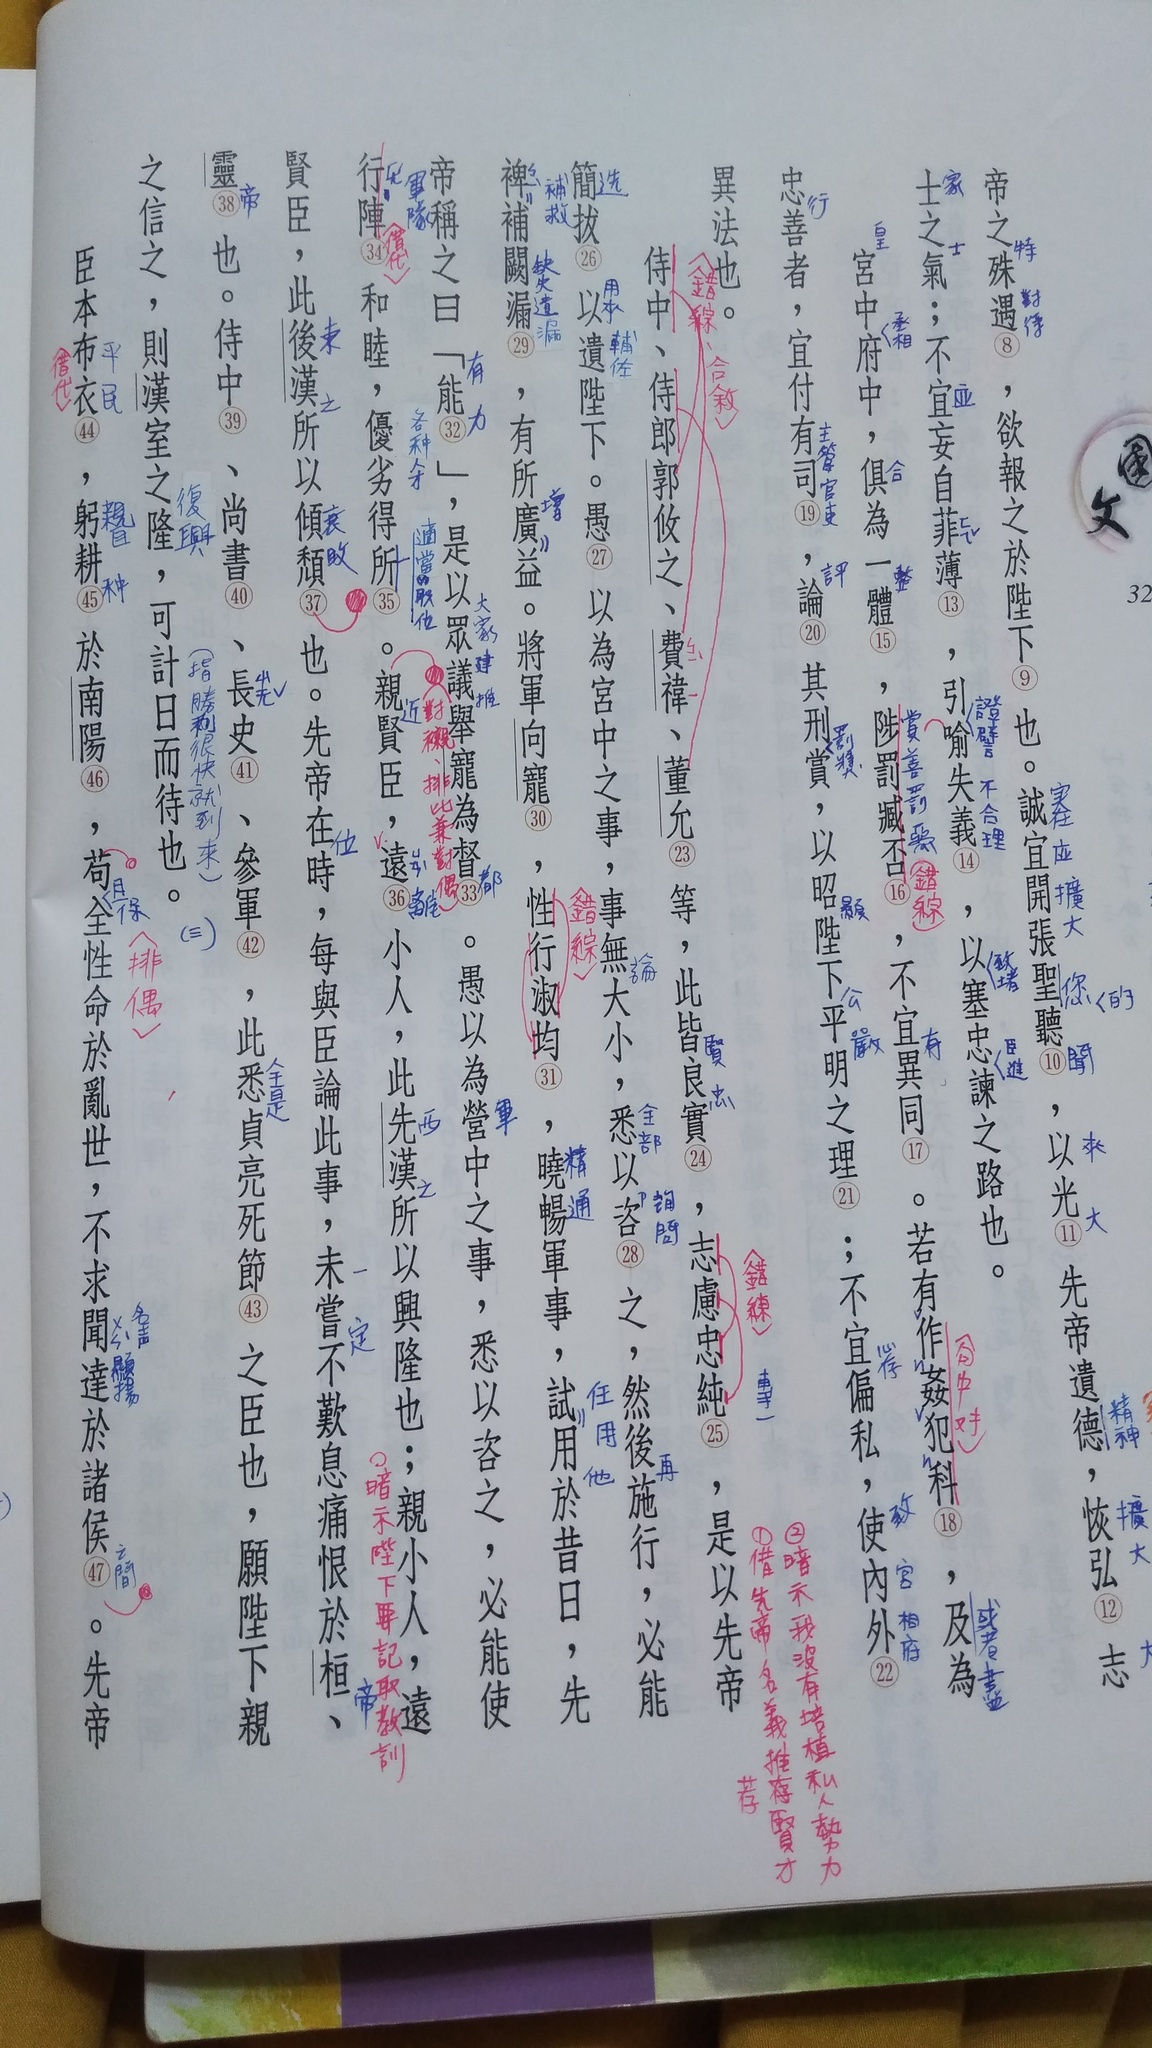 國
文
32
帝之殊遇⑧，欲報之於陛下⑨也。誠宜開張聖聽⑩，以光⑪先帝遺德，恢弘⑫志
士之氣；不宜妄自菲薄⑬，引喻失義⑭，以塞忠諫之路也。
宮中府中，俱為一體⑮，陟罰臧否⑯，不宜異同⑰。若有作姦犯科⑱，及為
忠善者，宜付有司⑲，論⑳其刑賞，以昭陛下平明之理㉑；不宜偏私，使內外㉒
異法也。
侍中、侍郎郭攸之、費禕、董允㉓等，此皆良實㉔，志慮忠純㉕，是以先帝
簡拔㉖以遺陛下。愚㉗以為宮中之事，事無大小，悉以咨㉘之，然後施行，必能
裨補闕漏㉙，有所廣益。將軍向寵㉚，性行淑均㉛，曉暢軍事，試用於昔日，先
帝稱之曰「能㉜」，是以眾議舉寵為督㉝。愚以為營中之事，悉以咨之，必能使
行陣㉞和睦，優劣得所㉟。親賢臣，遠㊱小人，此先漢所以興隆也；親小人，遠
賢臣，此後漢所以傾頹㊲也。先帝在時，每與臣論此事，未嘗不歎息痛恨於桓、
靈㊳也。侍中㊴、尚書㊵、長史㊶、參軍㊷，此悉貞亮死節㊸之臣也，願陛下親
之信之，則漢室之隆，可計日而待也。
臣本布衣㊹，躬耕㊺於南陽㊻，苟全性命於亂世，不求聞達於諸侯㊼。先帝
特
對待
實在
應
擴大
您的
聞
來
大
精神
擴大
家
士
應
證
譬
不合理
致
堵
進
皇
丞相
合
整
賞善罰惡
〈錯綜〉
有
〈句中對〉
或者
行
主管官吏
評
罰
獎
顯
公
嚴
心存
致
宮
相府
〈錯綜、合敘〉
賢
忠
〈錯綜〉
專一
②暗示我沒有培植私人勢力
①借先帝名義推荐賢才
选
用來
輔佐
論
全部
詢問
再
補救
缺失遺漏
增
〈錯綜〉
精通
任用他
有力
大家
建
推
都
軍
軍隊
〈借代〉
各種
適當的職位
近
〈對襯、排比兼對偶〉
離
西
之
暗示陛下要記取教訓
東
之
衰敗
位
一定
帝
帝
全是
復興
(指勝利很快就到來)
(三)
平民
〈借代〉
親自
种
且
保
〈排偶〉
名声
顯揚
之間